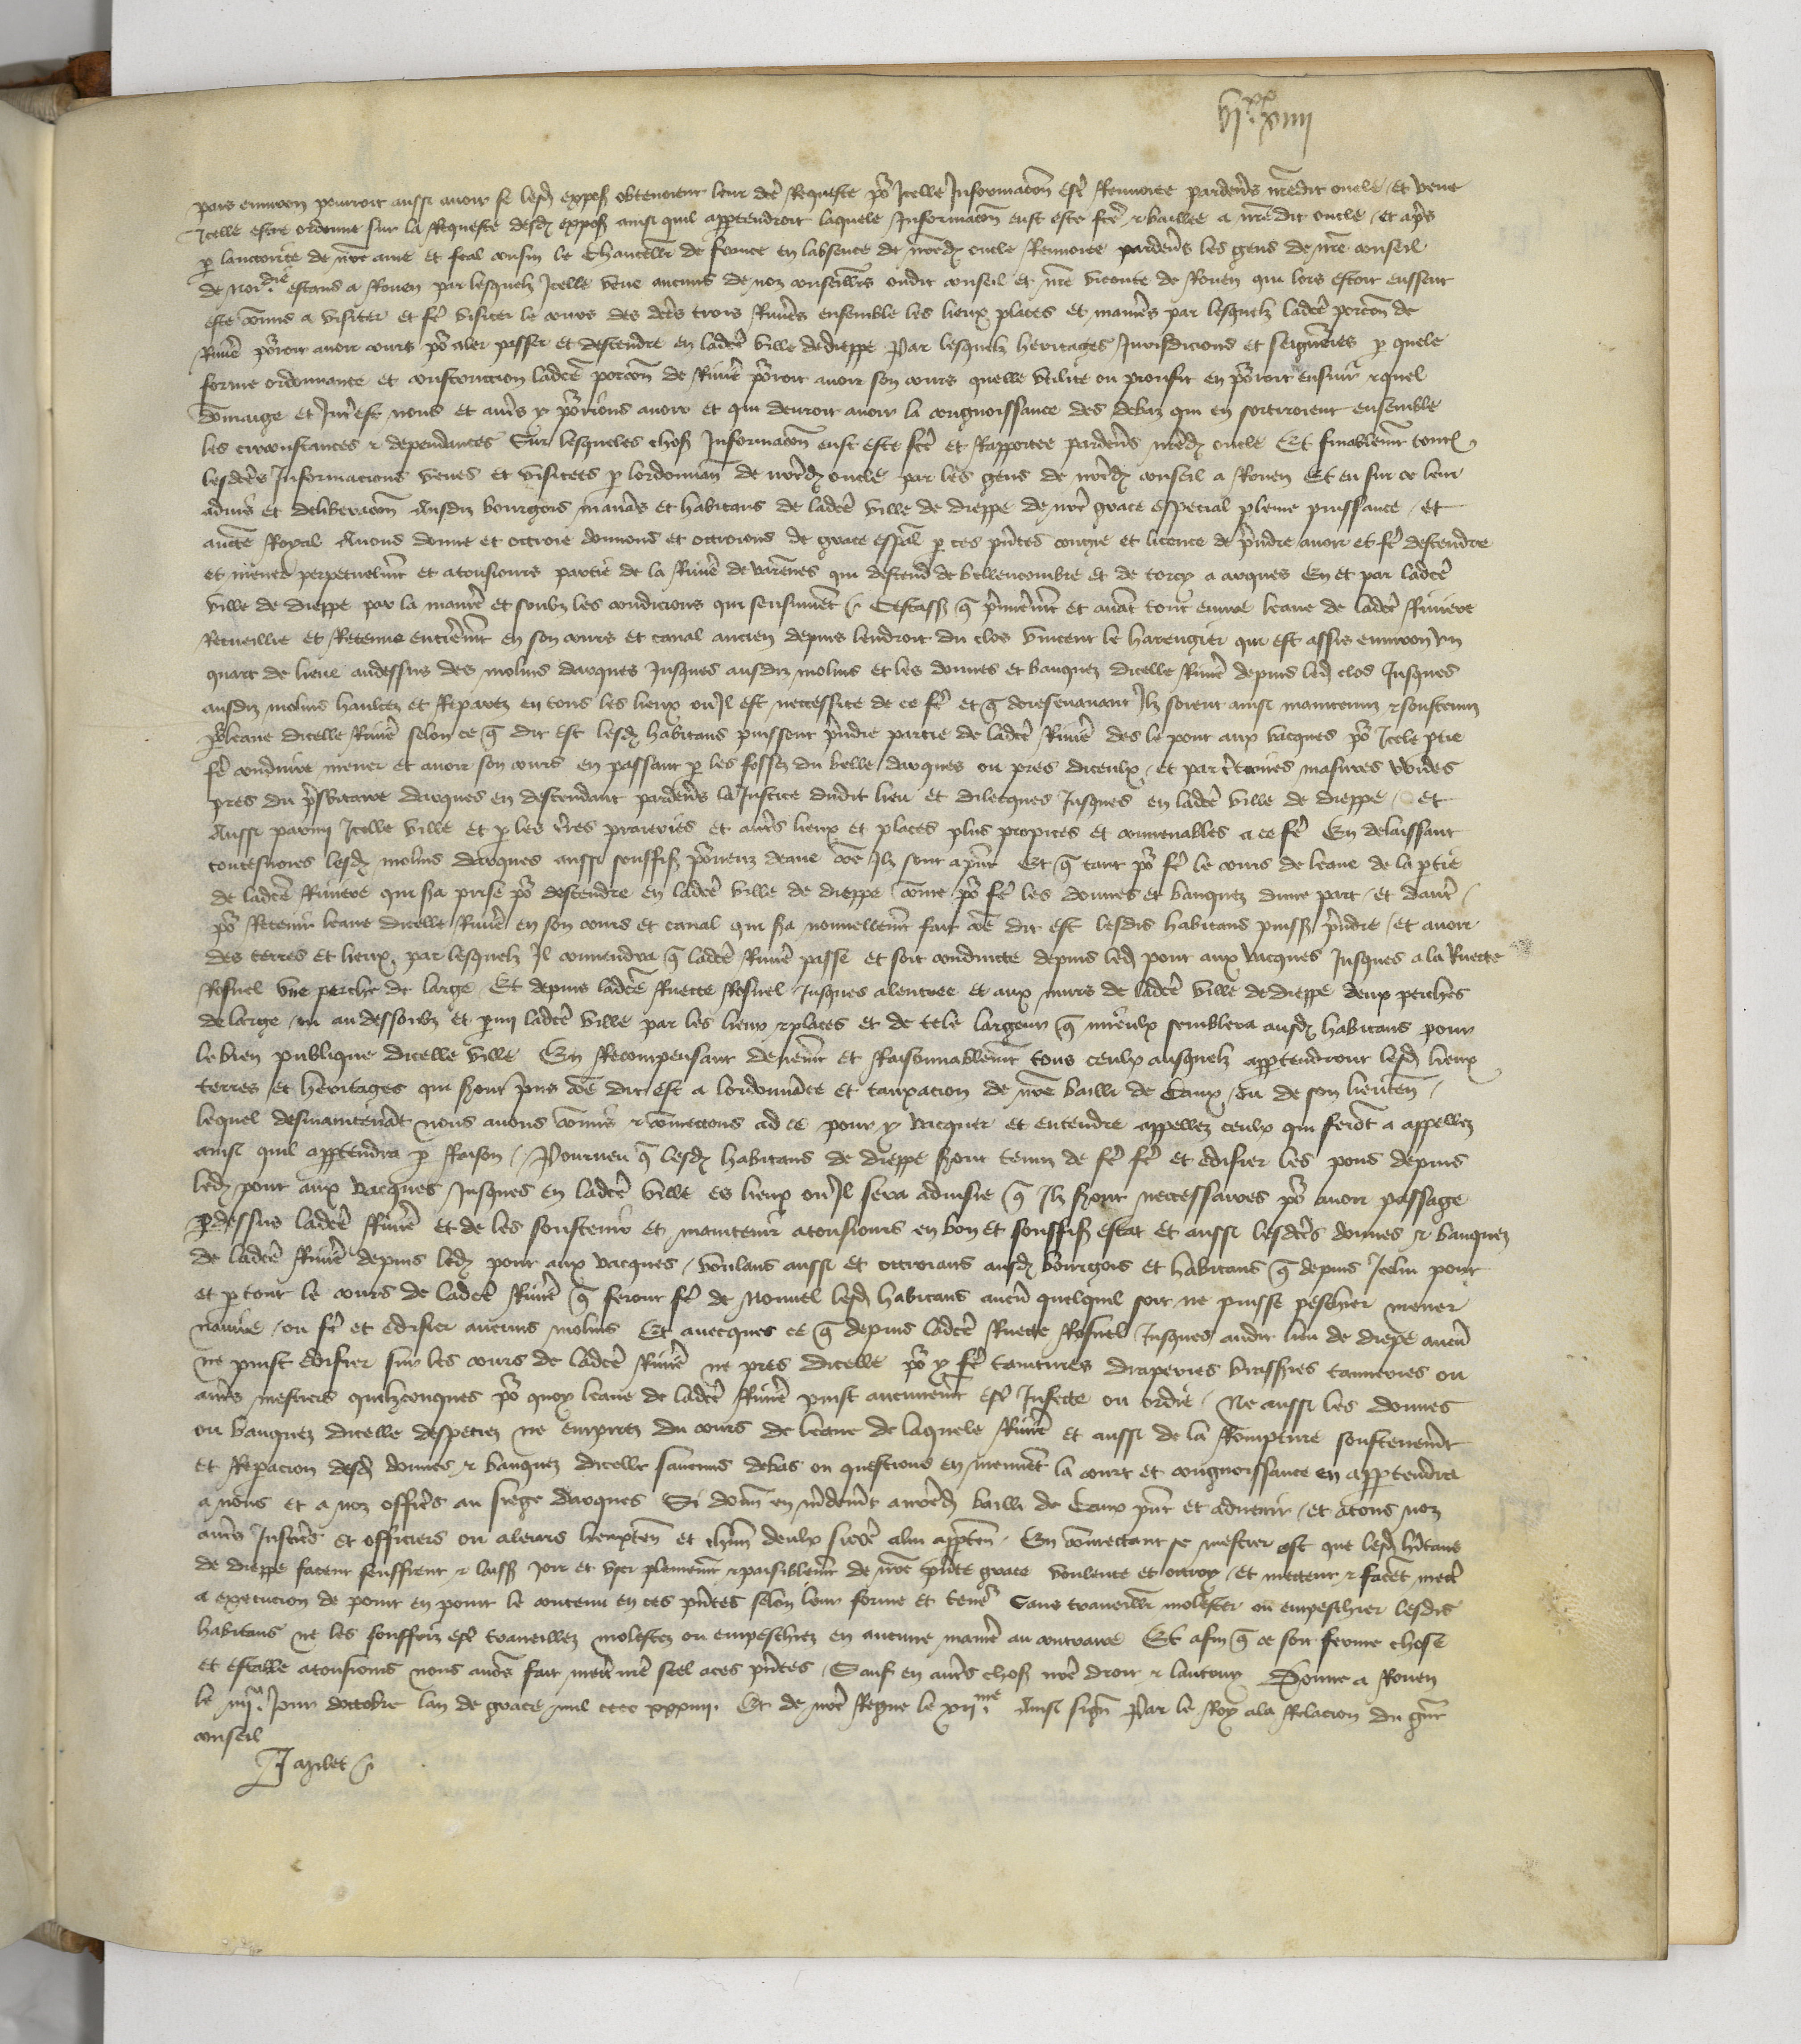 vjxx xiiii
pais environ pourroit aussi avoir se lesd expos obtenoient leur dce Requeste po Icelle Informacon est Renvoiee pardevs nredit oncle Et veue
Icelle estre ordonne sur la Requeste desd expos ainsi quil appartendroit laquele Informacon eust este fce & baillee a nredit oncle et aps
p lauctorite de nre ame et feal cousin le Chancellr de france en labsence de nred oncle Renvoiee pardevs les gens de nre conseil
de Nordie estans a Rouen par lesquelz Icelle veue aucuns de noz conseillrs oudit conseil et nre viconte de Rouen qui lors estoit eussent
este comis a visiter et fe visiter le cours des dces trois Rivres ensemble les lieux places et manres par lesquelz ladce porcon de
Rivre porroit avoir cours po aler passer et descendre en ladce ville de dieppe Par lesquelz heritages Jurisdicions et seignries p quele
forme ordonnance et construction ladce porcon de Rivre porroit avoir son cours quelle utilite ou proufit en porroit ensuir & quel
domaige et Intrest nous et aurs y porrions avoir et qui devroit avoir la congnoissance des debaz qui en sortiroient ensemble
les circonstances & dependances Sur lesqueles chos Informacon eust este fce et Rapportee pardevs nred oncle Et finablemt toutes
lesdces Informacions veues et visitees p lordonnan de nred oncle par les gens de nred conseil a Rouen Et eu sur ce leur
advis et deliberacon Ausdiz bourgois manas et habitans de ladce ville de dieppe de nre grace especial pleine puissance et
aucte Royal Avons donne et ottroie donnons et ottroions de grace espal p ces pntes congie et licence de prndre avoir et fe descendre
et mener perpetuelmt et atousiours partie de la Rivre de varennes qui descend de bellencombre et de torcy a arques En et par ladce
ville de dieppe par la manre et soubz les condicions qui sensuivet Cestass q prmieremt et avat tout euvre leaue de ladce Riviere
Recueillie et Retenue entieremt en son cours et canal ancien depuis lendroit du clos vincent le harengier qui est assis environ un
quart de lieue audessus des molins darques Jusques ausdiz molins et les dounes et banquez dicelle Rivre depuis led clos Jusques
ausdiz molins haulcez et Reparez en tous les lieux ou Il est necessite de ce fe et q doresenavant Ilz soient ainsi maintenuz & soustenuz
po leaue dicelle Rivre selon ce q dit est lesd habitans puissent prndre partie de ladce Rivre des le pont aux vacques po Icele ptie
fe conduire mener et avoir son cours en passant p les fossez du belle darques ou pres diceulx et par ctaines masures vuides
pres du prsbitaire darques en descendant pardevs la Justice dudit lieu et dilecques Jusques en ladce ville de dieppe Et
Aussi parmy Icelle ville et p les tres praieries et aures lieux et places plus propices et convenables a ce fe En delaissant
toutesvoies lesd molins darques aussi souffis porveuz deaue come Ilz sont a pnt Et q tant po fe le cours de leaue de la ptie
de ladce Riviere qui sa prise po descendre en ladce ville de dieppe come po fe les dounes et banquez dune part et dautre
po Retenir leaue dicelle Rivre en son cours et canal qui sa nouvellemt fait coe dit est lesdis habitans puiss prndre et avoir
des terres et lieux par lesquelz Il convendra q ladce Rivre passe et soit conduicte depuis led pont aux vacques Jusques a la Ruette
Rosuel une perche de large Et depuis ladce Ruette Rosuel Jusques alentree et aux murs de ladce ville de dieppe deux perches
de large ou au dessoubz et pmi ladce ville par les lieux & places et de tele largeur q mieulx semblera ausd habitans pour
le bien publique dicelle ville En Recompensant deuemt et Raisonnablemt tous ceulx ausquelz appartendront lesd lieux
terres et heritages qui seront prins coe dit est a lordonnance et tauxacion de nre bailli de Caux ou de son lieuten
lequel desmaintenat nous avons comis & comectons ad ce pour y vacquer et entendre appellez ceulx qui feront a appellez
ainsi quil appartendra p Raison Pourveu q lesd habitans de dieppe seront tenuz de fe fe et edifier les pons depuis
led pont aux vacques Jusques en ladce ville es lieux ou Il sera advisie q Ilz seront necessaires po avoir passage
p dessus ladce Rivre et de les soustenir et maintenir atousiours en bon et souffis estat et aussi lesdces dounes & banquez
de ladce Rivre depuis led pont aux vacques voulans aussi et ottroians ausd bourgois et habitans q depuis Icelui pont
et p tout le cours de ladce Rivre q feront fe de Nouvel lesd habitans aucu quelquil soit ne puisse peschier mener
navire ou fe et edifier aucuns molins Et avecques ce q depuis ladce Ruette Rosuel Jusques audit lieu de dieppe aucu
ne puist edifier sur les cours de ladce Rivre ne pres dicelle po y fe tainctures draperies brasseries tanneries ou
aures mestiers quelzconques po quoy leaue de ladce Rivre puist aucunemt est Infecte ou ordie Ne aussi les dounes
ou banquez dicelle despeciez ne empirez du cours de leaue de laquele Rivre et aussi de la Rompture soustenemt
et Repacion desd dounes & banquez dicelle saucuns debas ou questions en mouvet la court et congnoissance en appartendra
a nous et a noz officrs au siege darques Si donn en mdemt a nred bailli de Caux pnt et advenir et a tous noz
aures Justicrs et officiers ou a leurs lieuxten et chun deulx sicoe alui apparten En comectant se mestier est que lesd hitans
de dieppe facent seuffrent & laiss joir et user plainemt & paisiblemt de nre pnte grace voulente et ottroy et mettent & facet mettre
a execucion de point en point le contenu en ces pntes selon leur forme et tenr Sans travaillr molester ou empeschier lesdis
habitans ne les souffrir est travaillez molestez ou empeschiez en aucune manre au contraire Et afin q ce soit ferme chose
et estable atousiours nous avos fait mettre nre seel a ces pntes Sauf en aures chos nre droit & lautruy Donne a Rouen
le iiije Jour doctobre lan de grace mil cccc xxxiiij Et de nre Regne le xijme Ainsi signe Par le Roy ala Relacion du grnt
conseil
Jazilet